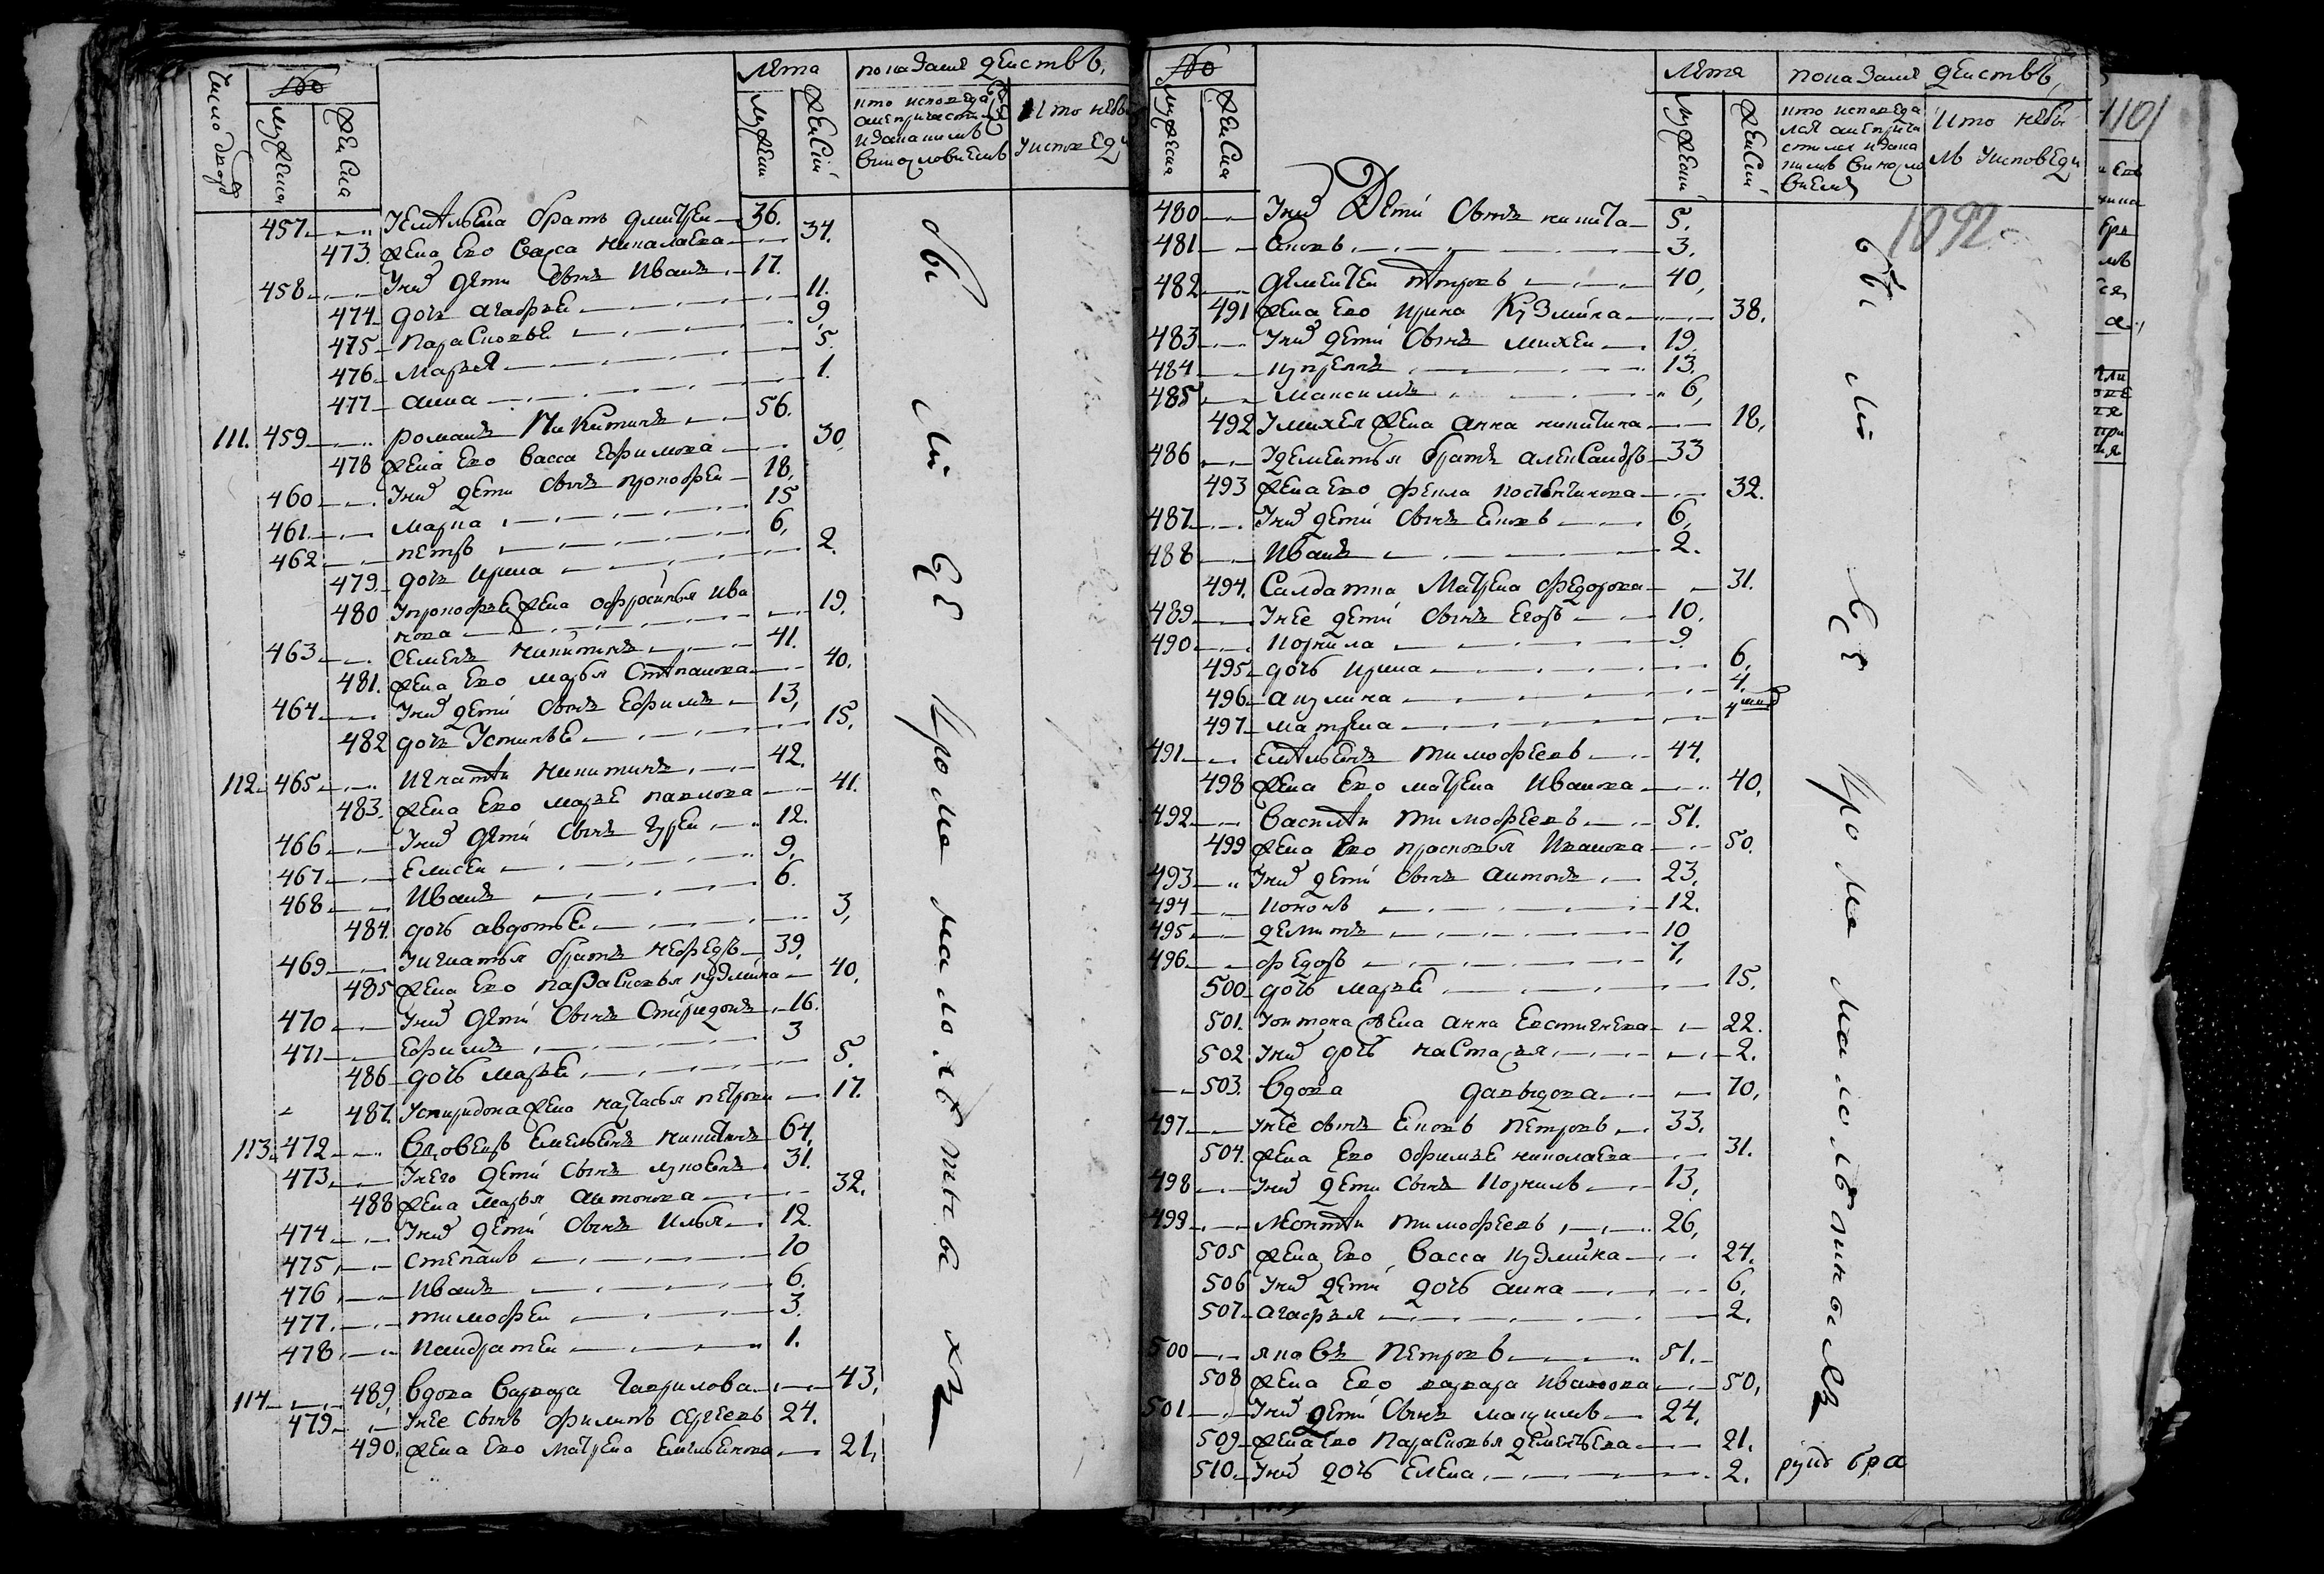 Число дворов
№
мужеска
женска
Лета
мужеск
женск
показание действъ,
кто исповеда
Кто небы
у исповеди
457 Уемельяна братъ дмитрей 36.
473. жена Ево Васса николаева 34.
458 Уних дети сынъ Иванъ 17.
474 дочь агафья 11.
475 Парасковья 9,
476 Марья 5.
477 анна 1.
111. 459 романъ Никитинъ 56.
478 жена Ево васса Ефимова 30,
460 Уних дети сынъ прокофей 18,
461 марка 15
462 петръ 6,
479. дочь ирина 2.
480 Упрокофья жена офросинья Ива
нова 19.
463 Семенъ никитинъ 41.
481. жена Ево марья Степанова 40,
464 Уних дети сынъ Ефимъ 13,
482 дочь Устинья 15,
112. 465 Игнатей никитинъ 42.
483. жена Ево марья павлова 41.
466 Уних дети сынъ гурей 12.
467 Елисей 9,
468 Иванъ 6.
484. дочь авдотья 3,
469 Уигнатья братъ нефедъ 39,
485 жена Ево парасковья кузмина 40,
470 Уних дети сынъ Спиридонъ 16.
471 Ефимъ 3
486 дочь марья 5.
487. Успиридона жена настасья петрова 17.
113. 472 Вдовецъ Емельянъ никитинъ 64,
473 Унего дети сынъ лукоянъ 31.
488 жена Марья антонова 32.
474 Уних дети сынъ Илья 12.
475 степанъ 10
476 Иванъ 6.
477. тимофей 3.
478 кандратей 1.
114. 489, вдова варвара гаврилова 43,
479 Унее сынъ филипъ сергеевъ 24.
490. жена Ево матрена Емельянова 21,
бы ли все кроме малолетныхъ
№
мужеска
женска
Лета
мужеск
женск
показание действъ,
кто исповеда
Кто небы
лъ у исповеди
1092
1101
480 Уних Дети сынъ никита 5.
481 Яковъ 3.
482 дементей петровъ 40,
491 жена Ево ирина Кузмина 38.
483 Уних дети сынъ михей 19.
484 купреянъ 13.
485 максимъ 6,
492 Умихея жена анна никитина 18,
486 Удементья братъ александръ 33
493 жена Ево фекла костентинова 32.
487 Уних дети сынъ Яковъ 6,
488 Иванъ 2.
494. Салдатка Матрена федорова 31.
489 Унее дети сынъ Егоръ 10.
490 корнила 9
495 дочь ирина 6,
496 акулина 4.
497 матрена 4
491 Емельянъ тимофеевъ 44.
498 жена Ево матрена Иванова 40,
492 Василей тимофеевъ 51.
499 жена Ево прасковья Иванова 50.
493 Уних дети сынъ антонъ 23,
494 кононъ 12.
495 демидъ 10
496 федоръ 7,
500 дочь марья 15.
501. Уонтона жена анна Евстигнеева 22.
502 Уних дочь настасья 2.
503. Вдова давыдова 70,
497 Унее сынъ Яковъ петровъ 33.
504. жена Ево офимья николаева 31.
498 Уних дети сынъ корнилъ 13,
499 леонтей тимофеевъ 26,
505 жена Ево васса кузмина 24.
506 Уних дети дочь анна 6,
507 агафья 2.
500 яковъ петровъ 51.
508 жена Ево варвара Иванова 50,
501 Уних дети сынъ максимъ 24,
509 жена Ево парасковья дементьева 21.
510 Уних дочь Елена 2.
бы ли все кроме малолетныхъ